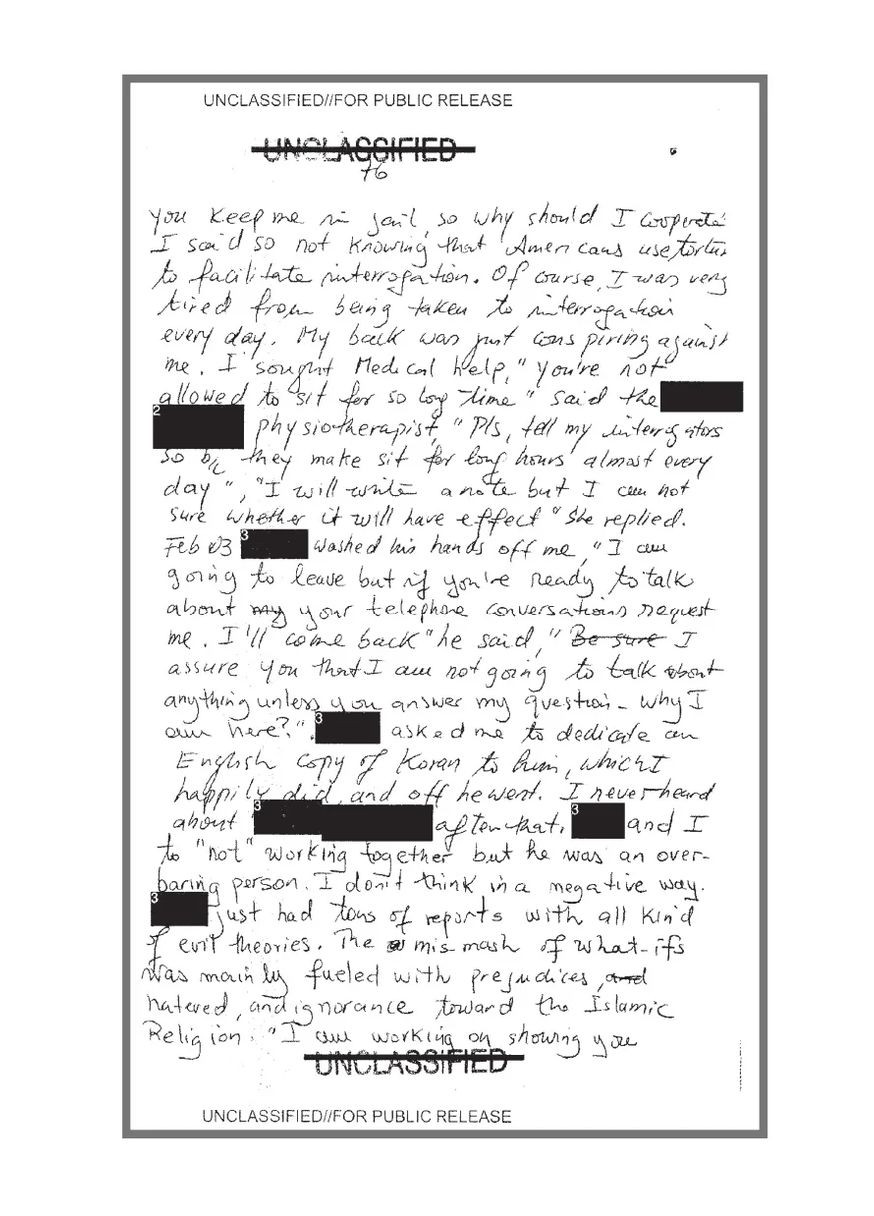 UNCLASSIFIED//FOR PUBLIC RELEASE
UNCLASSIFIED
76
you keep me in jail, so why should I cooperate
I said so not knowing that Americans use tortur
to facilitate interrogation. Of course, I was very
tired from being taken to interrogation
every day. My back was just conspiring against
me. I sought Medical help, "you're not
allowed to sit for so long time" said the
2
physiotherapist, "Pls, tell my interrogators
so b/c they make sit for long hours almost every
day", "I will write a note but I am not
sure whether it will have effect" She replied.
Feb 03 3 washed his hands off me, "I am
going to leave but if you're ready to talk
about my your telephone conversations request
me. I'll come back" he said, "Be sure I
assure you that I am not going to talk about
anything unless you answer my question - Why I
am here?". 3 asked me to dedicate an
English copy of Koran to him, which I
happily did, and off he went. I never heard
about 3 after that, 3 and I
to "not" working together but he was an over-
baring person. I don't think in a negative way.
3 just had tons of reports with all kind
of evil theories. The mis mash of what-ifs
was mainly fueled with prejudices, and
hatered, and ignorance toward the Islamic
Religion. "I am working on showing you
UNCLASSIFIED
UNCLASSIFIED//FOR PUBLIC RELEASE